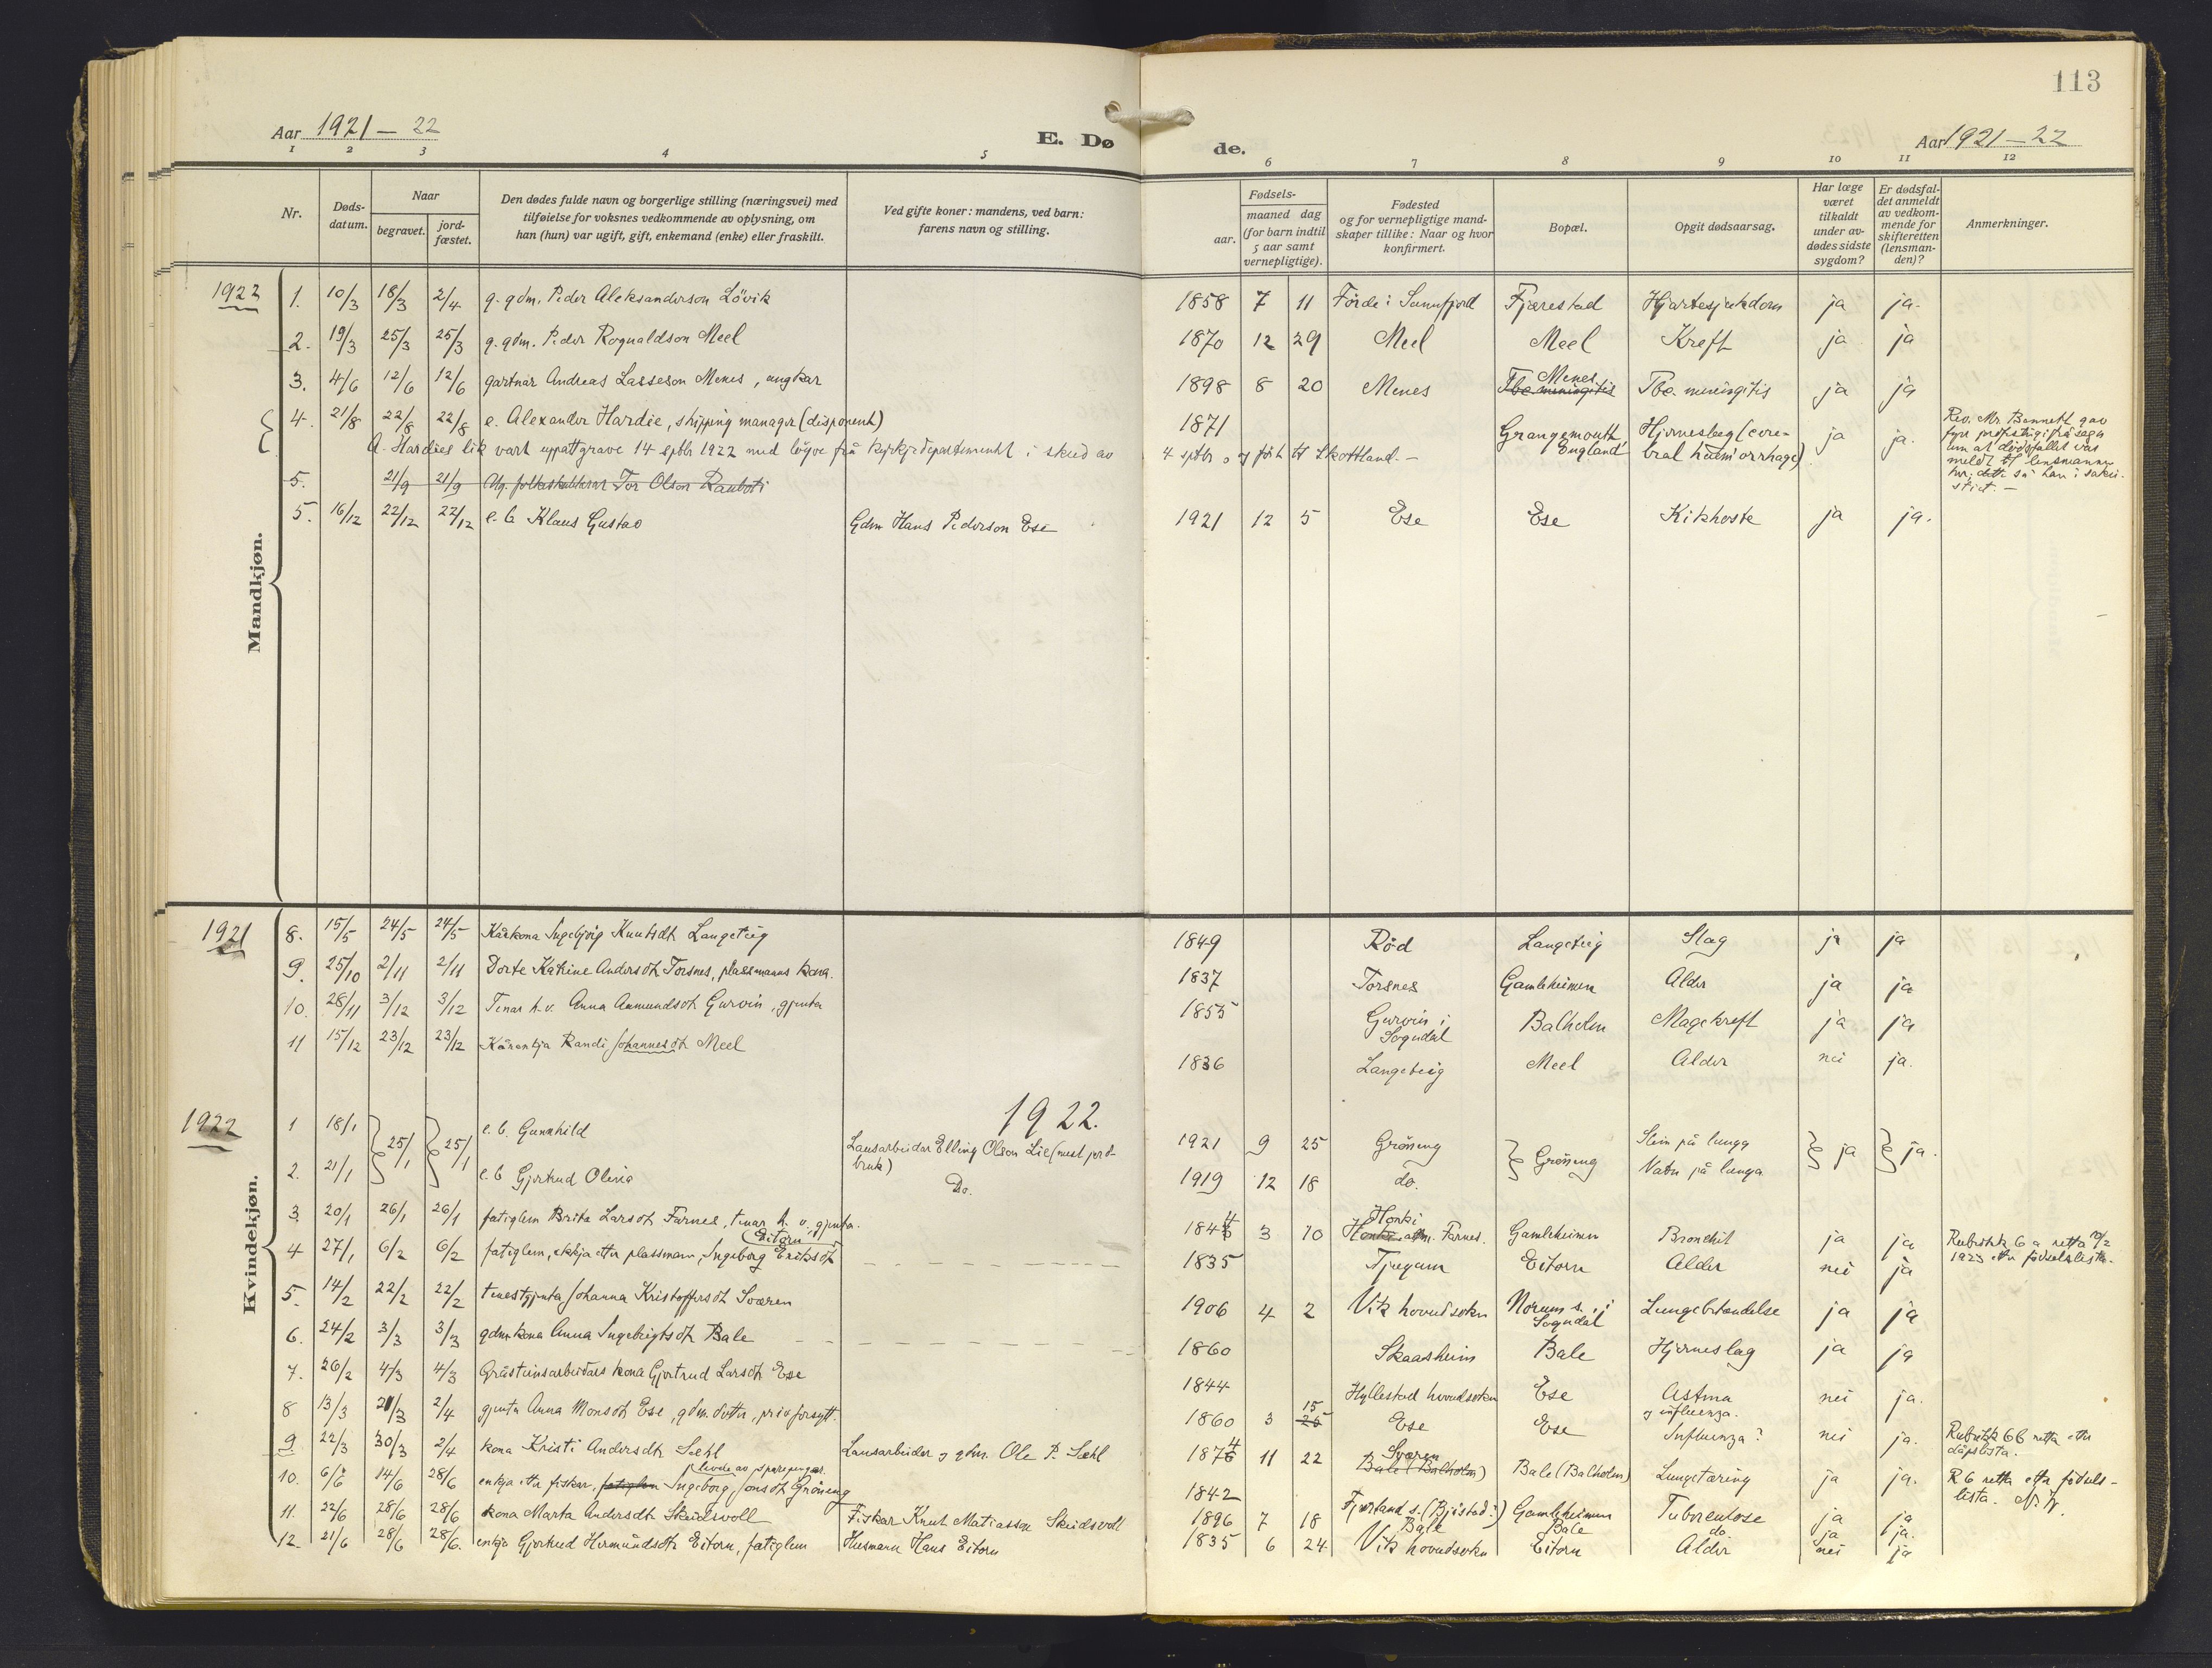 113
Aar 1921 — 22
E. Dø
de.
Aar 1921 — 22
1 2 3 4 5 6 7 8 9 10 11 12
Nr.
Døds-
datum.
Naar
begravet.
jord-
fæstet.
Den dødes fulde navn og borgerlige stilling (næringsvei) med
tilføielse for voksnes vedkommende av oplysning, om
han (hun) var ugift, gift, enkemand (enke) eller fraskilt.
Ved gifte koner: mandens, ved barn:
farens navn og stilling.
Fødsels-
aar.
maaned dag
(for barn indtil
5 aar samt
vernepligtige).
Fødested
og for vernepligtige mand-
skaper tillike: Naar og hvor
konfirmert.
Bopæl.
Opgit dødsaarsag.
Har læge
været
tilkaldt
under av-
dødes sidste
sygdom?
Er dødsfal-
det anmeldt
av vedkom-
mende for
skifteretten
(lensman-
den)?
Anmerkninger.
Mandkjøn.
1922 1. 10/3 18/3 2/4 g. gdm. Peder Aleksanderson Lövik 1858 7 11 Förde i Sunnfjord Fjærestad Hjartesjukdom ja ja.
2. 19/3 25/3 25/3 g. gdm. Peder Rognaldson Meel 1870 12 29 Meel Meel Kreft ja ja
3. 4/6 12/6 12/6 gartnar Andreas Lasseson Menes, ungkar 1898 8 20 Menes Tbc. meningitis Menes Tbc. meningitis ja ja
4. 21/8 22/8 22/8 e. Alexander Hardie, shipping manager (disponent) 1871 Grangemouth, England Hjerneslag (cere-
bral hæmorrhage) ja ja.
Rev. Mr. Bennett gav
fyre
um at dödsfallet var
meldt til lensmannen
A. Hardies lik vart uppattgrave 14 septbr 1922 med löyve frå kyrkjedepartementet i skriv av 4 septbr. og fört til Skottland. —
5. 21/9 21/9 Tor Olson Rauboti
5. 16/12 22/12 22/12 e. b. Klaus Gustav Gdm Hans Pederson Ese 1921 12 5 Ese Ese Kikhoste ja ja.
Kvindekjøn.
1921 8. 15/5 24/5 24/5 Kårkona Ingebjörg Knutsdt. Langeteig 1849 Röd Langeteig Slag ja ja
9. 25/10 2/11 2/11 Dorte Katrine Andersdt. Torsnes, plassmanns kona. 1837 Torsnes Gamleheimen Alder ja ja
10. 28/11 3/12 3/12 Tenar h. v. Anna Aamundsdt. Gurvin, gjenta 1855 Gurvin i
Sogndal Balholm Magekreft ja ja
11 15/12 23/12 23/12 Kårenkja Randi Johannesdt. Meel 1836 Langeteig Meel Alder nei ja.
1922.
1922 1 18/1 25/1 25/1 e. b. Gunnhild Lausarbeidar Elling Olson Lie (mest jord-
bruk) 1921 9 25 Gröneng Gröneng Slim på lunga ja ja.
2. 21/1 e. b Gjertrud Olina Do. 1919 12 18 do. Vatn på lunga
3. 20/1 26/1 26/1 fatiglem Brita Larsdt. Farnes, tenar h. v. gjenta. 1844 3 10 Honki Farnes. Gamleheimen Bronchit ja ja Rubrikk 6 a retta 12/2
1923 etter födselslista.
4 27/1 6/2 6/2 fatiglem, ekkja etter plassmann, Ingeborg Eriksdt. Eitorn 1835 Tjugum Eitorn Alder nei ja
5. 14/2 22/2 22/2 tenestgjenta Johanna Kristoffersdt. Sværen 1906 4 2 Vik hovudsokn Norum s. i
Sogndal Lungebetendelse ja ja
6. 24/2 3/3 3/3 gdm.kona Anna Ingebrigtsdt. Bale 1860 Skaasheim Bale Hjerneslag ja ja
7. 26/2 4/3 4/3 Gråsteinsarbeidars kona Gjertrud Larsdt. Ese 1844 Hyllestad hovudsokn Ese Astma
og influenza. nei ja.
8 13/3 21/3 2/4 gjenta Anna Monsdt. Ese, gdm. dotter, priv. forsytt. 1860 3 15 26 Ese Ese Influenza? nei ja. Rubrikk 6b retta etter
dåpslista.
9 22/3 30/3 2/4 kona Kristi Andersdt. Sæhl Lausarbeider og gdm. Ole P. Sæhl 1874 11 22 Sværen Bale (Balholm) Bale (Balholm) Lungetæring ja ja. R 6 retta etter födsels-
lista.
10. 6/6 14/6 28/6 enkja etter fiskar, fatiglem Ingeborg Jonsdt. Gröneng levde av sparepengar. 1842 Fjærland s. Gamleheimen Tuberculose ja ja
11. 22/6 28/6 28/6 kona Marta Andersdt. Skeidsvoll Fiskar Knut Matiasson Skeidsvoll 1896 7 18 Bale Bale do. ja ja.
12 21/6 28/6 28/6. enkja Gjertrud Hermundsdt. Eitorn, fatiglem Husmann Hans Eitorn 1835 6 24 Vik hovudsokn Eitorn Alder nei ja